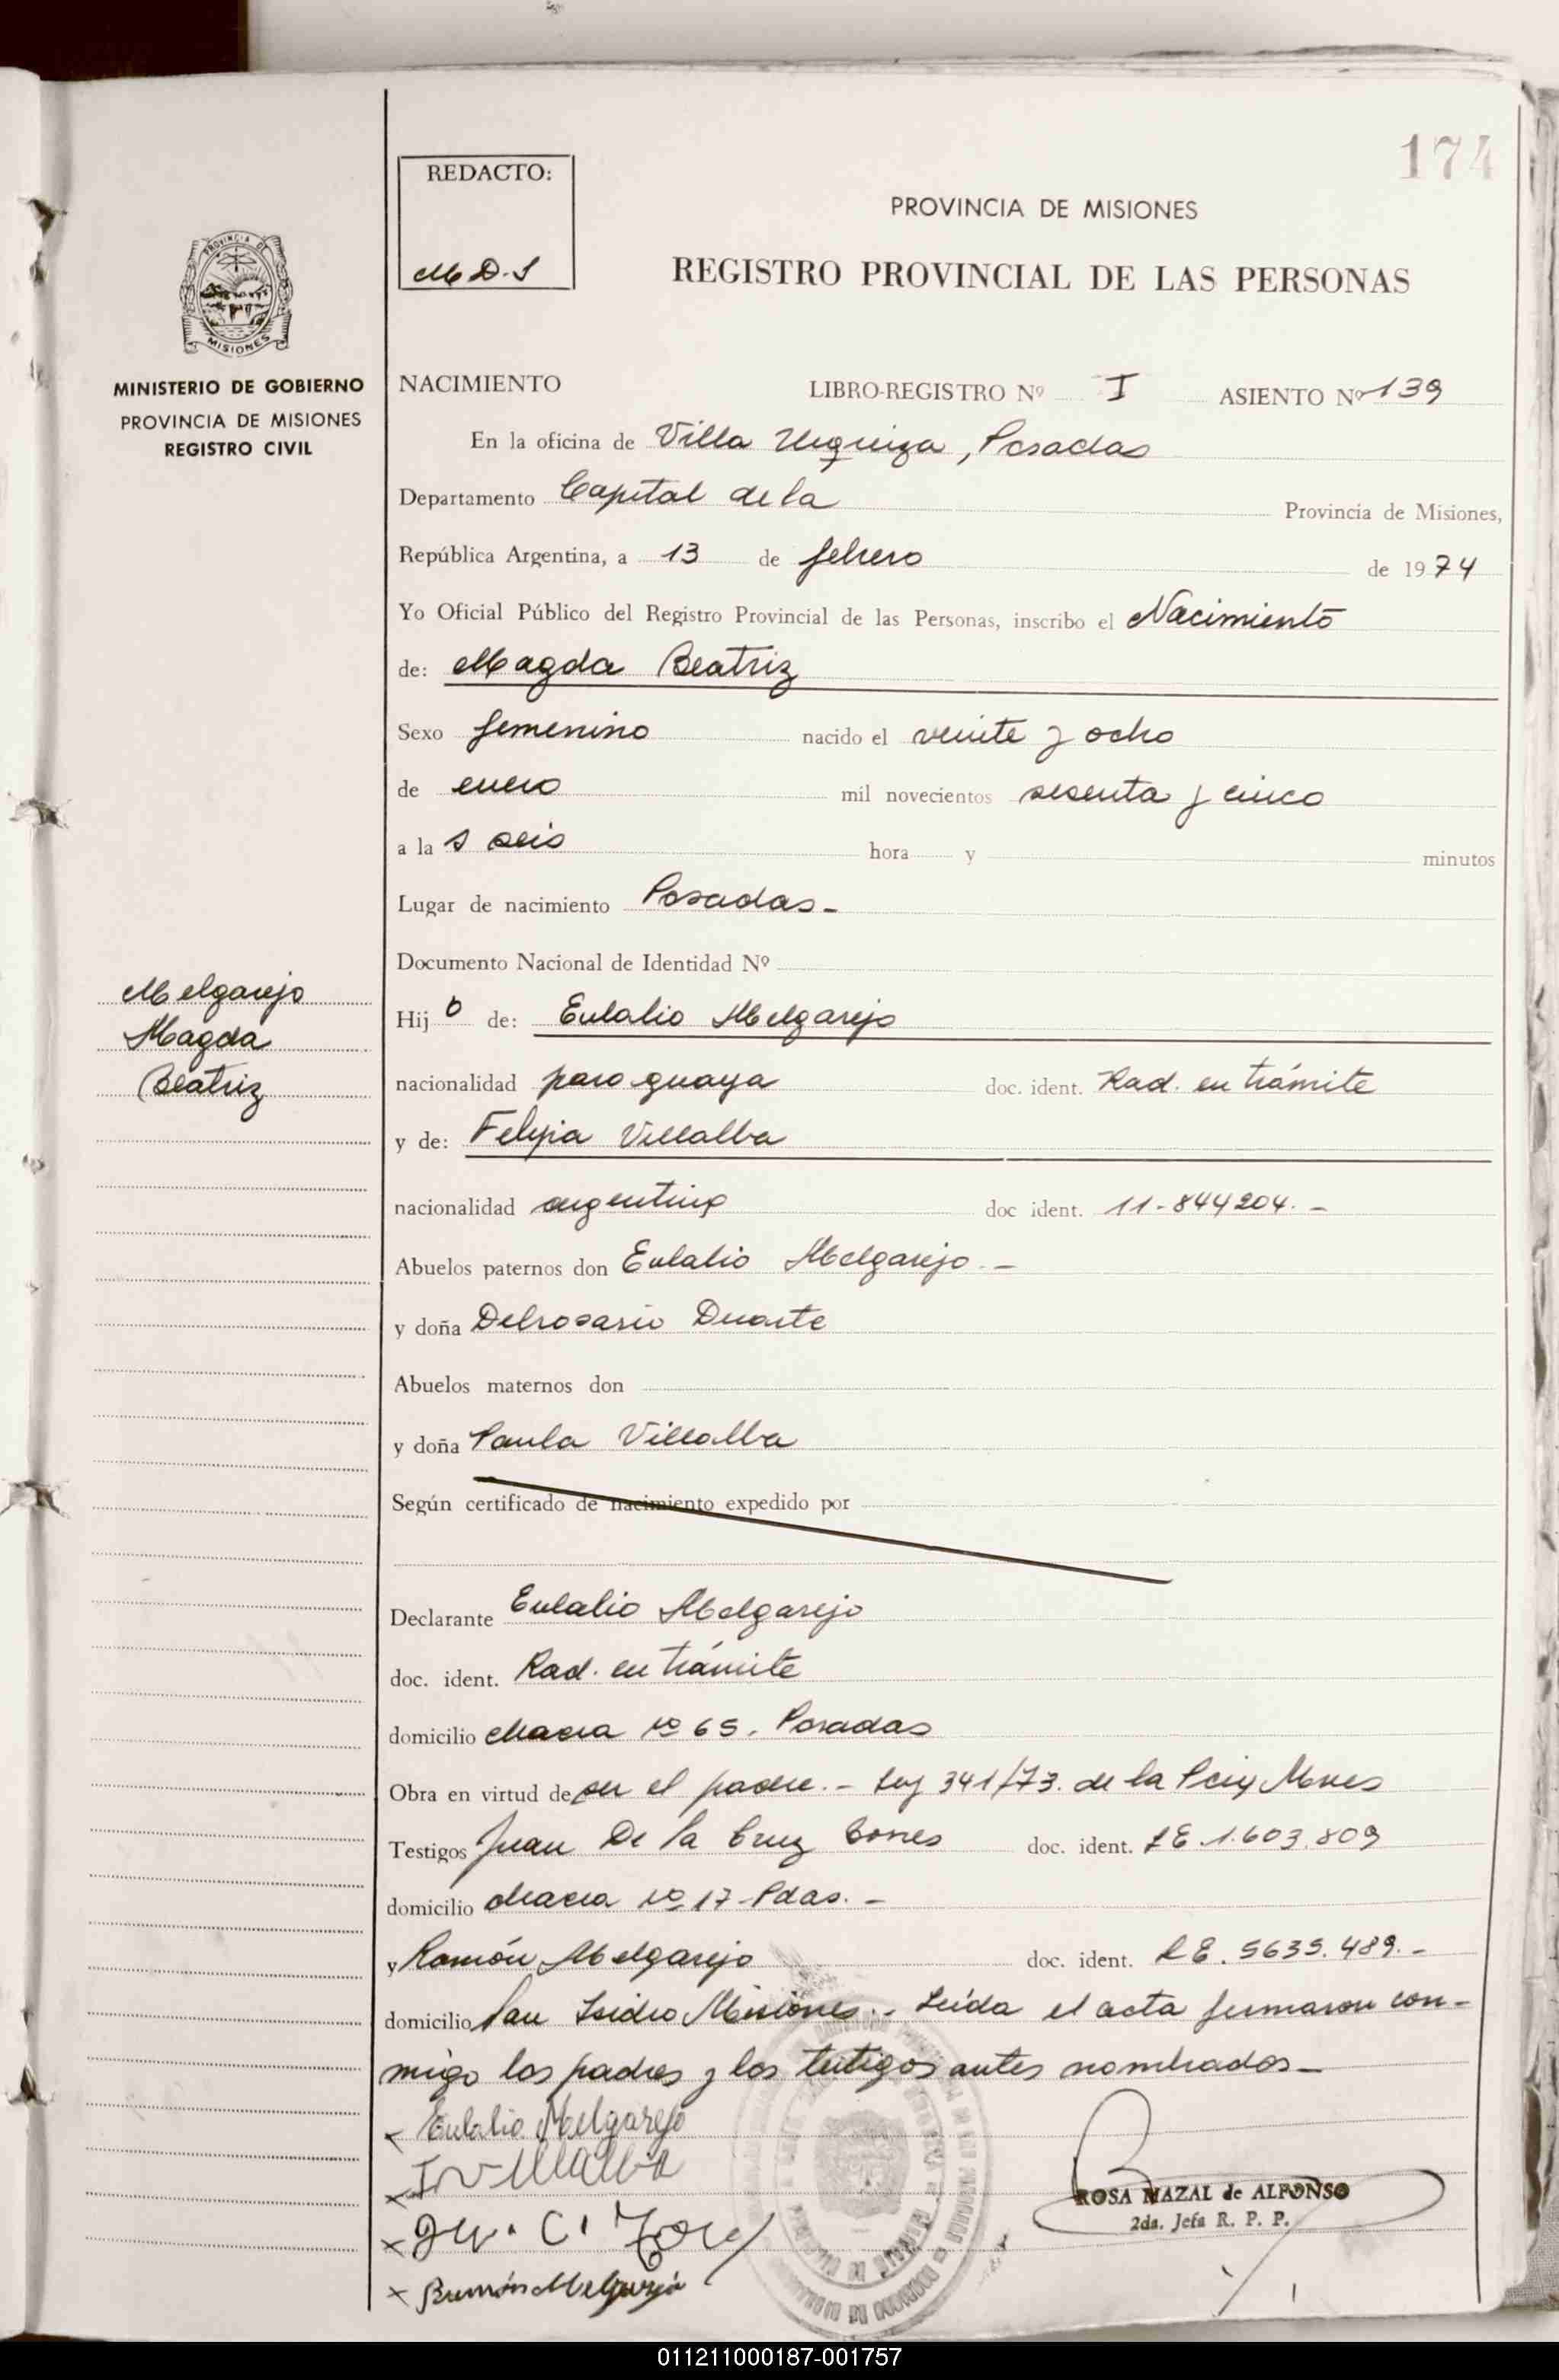 174
REDACTO:
M D. S
PROVINCIA DE MISIONES
REGISTRO PROVINCIAL DE LAS PERSONAS
PROVINCIA DE
MISIONES
MINISTERIO DE GOBIERNO
PROVINCIA DE MISIONES
REGISTRO CIVIL
NACIMIENTO LIBRO-REGISTRO Nº I ASIENTO Nº 139
En la oficina de Villa Urquiza, Posadas
Departamento Capital de la Provincia de Misiones,
República Argentina, a 13 de febrero de 1974
Yo Oficial Público del Registro Provincial de las Personas, inscribo el Nacimiento
de: Magda Beatriz
Sexo femenino nacido el veinte y ocho
de enero mil novecientos sesenta y cinco
a la s seis hora y minutos
Lugar de nacimiento Posadas-
Documento Nacional de Identidad Nº
Melgarejo
Magda
Beatriz
Hij o de: Eulalio Melgarejo
nacionalidad paraguaya doc. ident. Rad. en trámite
y de: Felipa Villalba
nacionalidad argentina doc ident. 11-844204.-
Abuelos paternos don Eulalio Melgarejo.-
y doña Delrosario Duarte
Abuelos maternos don
y doña Paula Villalba
Según certificado de nacimiento expedido por
Declarante Eulalio Melgarejo
doc. ident. Rad. en trámite
domicilio chacra nº 65. Posadas
Obra en virtud de ser el padre.- Ley 341/73. de la
Testigos Juan De la Cruz doc. ident. LE.1.603.809
domicilio chacra nº 17-Pdas.-
y Ramón Melgarejo doc. ident. LE. 5635.489.-
domicilio San Isidro Misiones.- Leída el acta firmaron con-
migo los padres y los testigos antes nombrados-
x Eulalio Melgarejo
x Villalba
x
x Ramón Melgarejo
ROSA MAZAL de ALFONSO
2da. Jefa R. P. P.
011211000187-001757